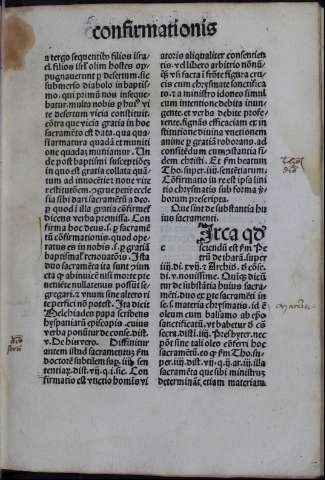 confirmationis
a tergo sequentibꝰ filios isra
el. filios isrl olim hostes op
pugnauerunt p desertum. sic
submerso diabolo in baptis
mo. qui primū nos inseque
batur. multa nobis p huiꝰ vi
te desertum vicia constituūt
eōtra que vicia gratia in hoc
sacramēto est data. qua qua
si armatura quadā et muniti
one quadaȝ muniamur. Un
de post baptismi susceptiōeȝ
in quo est gratia collata quā
tum ad innocētiē noue vite
restitutōem.
sia sibi dari sacramētū a deo.
p quod i illa gratia cōfirmet
dicens verba premissa. Con
firma hoc deus. s. p sacramē
tū cōfirmationis. quod ope
ratus es in nobis. s. p gratiā
baptismalē renouatōis. Ista
duo sacramēta ita sunt
cta ꝙ abinuicē nisi morte pre
ueniēte nullatenus possūt se
gregari. et vnum sine altero ri
te perfici nō potest. Ita dicit
Melchiades papa scribens
hyspaniarū episcopis. cuius
verba ponūtur de conse. dist.
v. De his vero. Diffinitur
autem istud sacramentuȝ
doctorē subtilem sup. iiij. sen
tentiaȝ. dist. vij. q. i. sic. Con
firmatio est vnctio homīs vi
atoris aliqualiter consentiēn
tis. vel libero arbitrio nōnū
ꝙȝ vsi facta ī frōte figura cru
cis cum chrysmate sanctifica
to. a ministro idoneo simul
cum intentione debita inun
gente. et verba debite profe
rente. signās efficaciam ex in
stitutione diuina vnctionem
anime p gratiam roborantē. ad
consitēdum cum
dem christi. Et ꝫm beatum
Tho. super. iiij. sentētiarum.
Cōfirmatio siue est ip̄a lini
tio chrysmatis sub forma
borum prescripta.
Que sint de substantia hu
ius sacramenti.
Irca qd
sciendū est ꝫm Pe
trū de thara. super
iiij. di. xvij. et Archid. de cōse.
di. v. nouissime. Quiqȝ dicūn
tur de substātia huius sacra
menti. duo ex pte sacramēti
s. materia chrysmatis. id ē
oleum cum balsamo ab epō
sanctificatū. vt habetur d cō
secra. dist. iiij. Presbyter. nec
pōt sine tali oleo cōferri hoc
sacramētū. eo ꝙ ꝫm Tho. su
per. iiij. dist. vij. q. ij. ar. iij. illa
sacramēta que sibi ministruȝ
determināt. etiam materiam